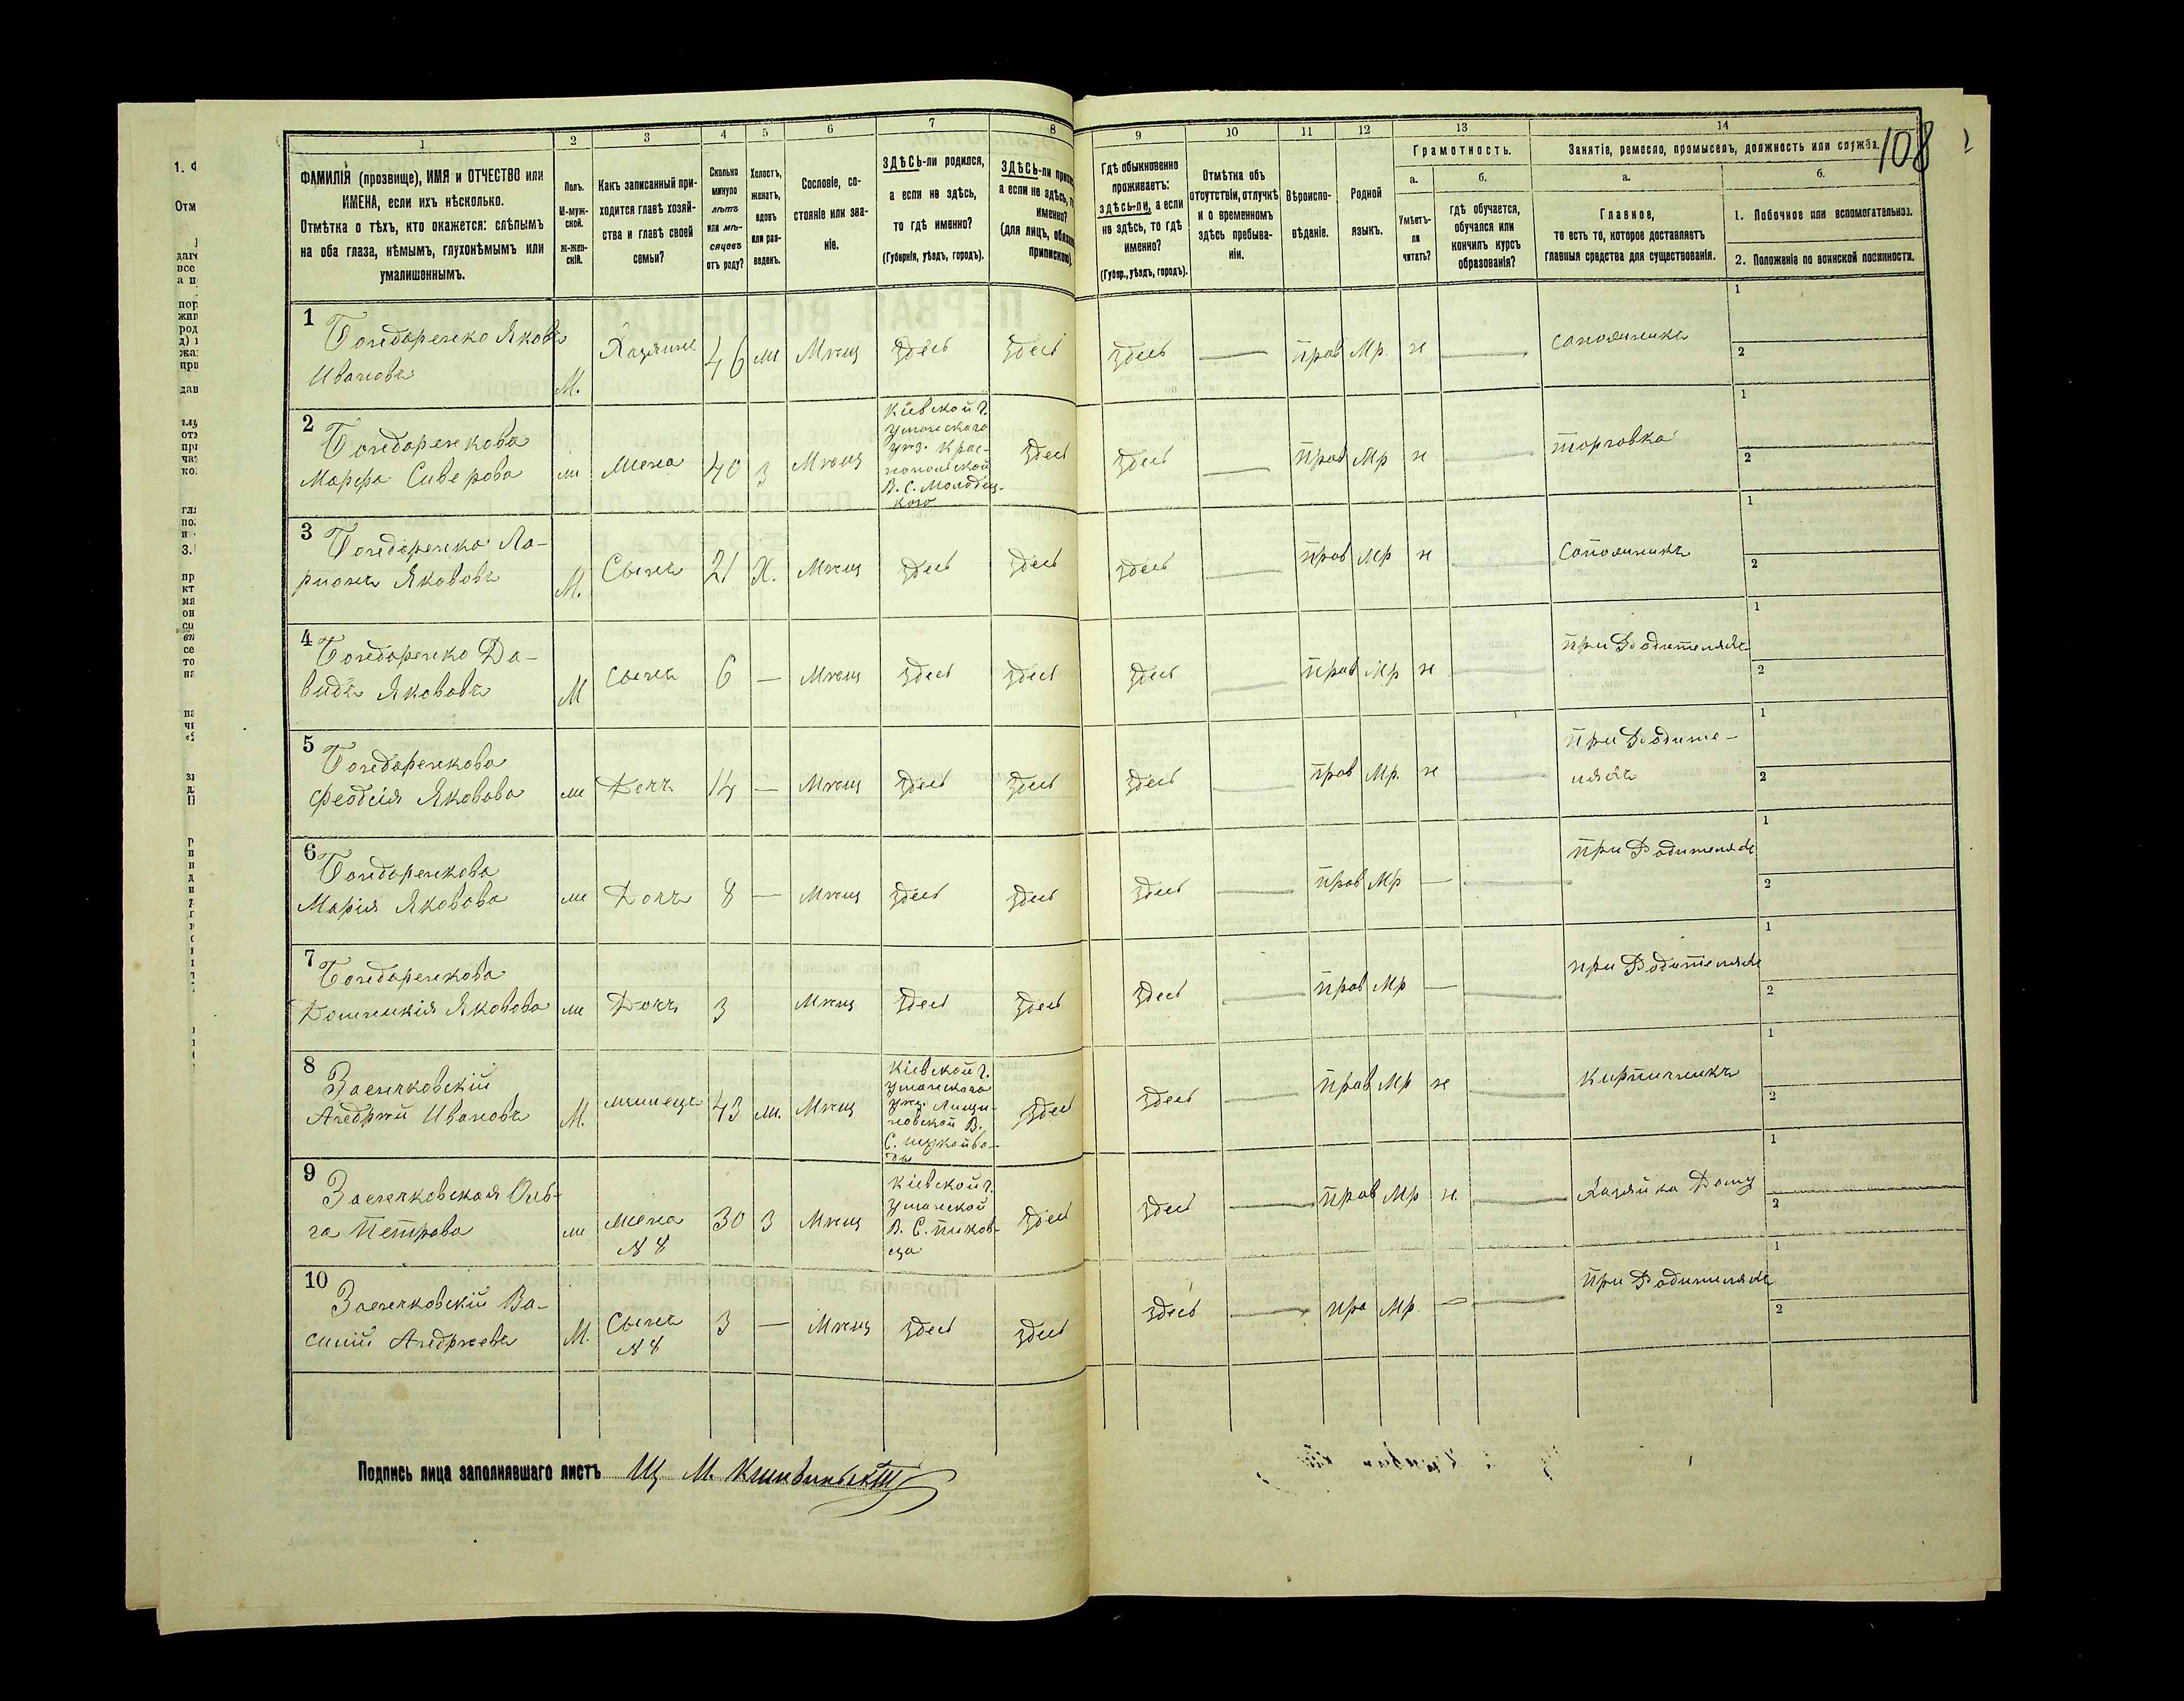 108
1 2 3 4 5 6 7 8 9 10 11 12 13 14
ФАМИЛІЯ (прозвище), ИМЯ и ОТЧЕСТВО или
ИМЕНА, если ихъ нѣсколько.
Отмѣтка о тѣхъ, кто окажется: слѣпымъ
на оба глаза, нѣмымъ, глухонѣмымъ или
умалишеннымъ.
Полъ.
М-муж-
ской.
Ж-жен-
скій.
Какъ записанный при-
ходится главѣ хозяй-
ства и главѣ своей
семьи?
Сколько
минуло
лѣтъ
или мѣ-
сяцевъ
отъ роду?
Холостъ,
женатъ,
вдовъ
или раз-
веденъ.
Сословіе, со-
стояніе или зва-
ніе.
ЗДѢСЬ-ли родился,
а если не здѣсь,
то гдѣ именно?
(Губернія, уѣздъ, городъ).
ЗДѢСЬ-ли
а если не здѣсь,
именно?
(для лицъ,
Гдѣ обыкновенно
проживаетъ:
здѣсь-ли, а если
не здѣсь, то гдѣ
именно?
(Губер., уѣздъ, городъ).
Отмѣтка объ
отсутствіи, отлучкѣ
и о временномъ
здѣсь пребыва-
ніи.
Вѣроиспо-
вѣданіе.
Родной
языкъ.
Грамотность.
а.
Умѣетъ-
ли
читать?
б.
гдѣ обучается,
обучался или
кончилъ курсъ
образованія?
Занятіе, ремесло, промыселъ, должность или служба.
а.
Главное,
то есть то, которое доставляетъ
главныя средства для существованія.
б.
1. Побочное или вспомогательное.
2. Положеніе по воинской повинности.
1 Бондаренко Яковъ
Ивановъ
М. Хозяинъ 46 ж Мѣщ здесь здесь здесь — прав Мр. н — 1
2
2 Бондаренкова
Марфа Сиверова
ж Жена 40 з Мѣщ
Кіевской г.
Уманского
уѣз. Крас-
нопольской
В. С. Молодец-
кого
здесь здесь — прав Мр н — торговка 1
2
3 Бондаренко Ла-
ріонъ Якововъ
М. Сынъ 21 Х. Мѣщ здесь здесь здесь — прав Мр н — 1
2
4 Бондаренко Да-
видъ Якововъ
М Сынъ 6 — Мѣщ здесь здесь здесь — прав Мр н — при Родителяхъ 1
2
5 Бондаренкова
Феодсія Яковова
ж Дочъ 14 — Мѣщ здесь здесь здесь — прав Мр. н — при Родите-
ляхъ 1
2
6 Бондаренкова
Марія Яковова
ж Дочъ 8 — Мѣщ здесь здесь здесь — прав Мр — — при Родителяхъ 1
2
7 Бондаренкова
Домникія Яковова
ж Дочъ 3 Мѣщ здесь здесь здесь — прав Мр — — при Родителяхъ 1
2
8 Заенчковскій
Андрѣй Ивановъ
М. жилецъ 43 ж. Мѣщ
Кіевской г.
Уманского
уѣз.
В.
С.
здесь здесь — прав Мр н — Кирпичникъ 1
2
9 Заенчковская Оль-
га Петрова
ж Жена
N 8
30 з Мѣщ
Кіевской г.
Уманской
В. С. Пиков-
еца
здесь здесь — прав Мр н. — Хозяйка Дому 1
2
10 Заенчковскій Ва-
силій Андрѣевъ
М. Сынъ
N 8
3 — Мѣщ здесь здесь здесь — пра Мр. — — при Родителяхъ 1
2
Подпись лица заполнявшаго листъ